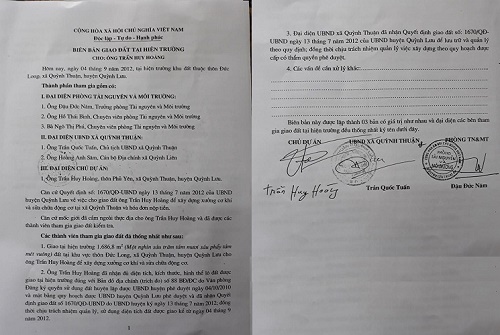 CỘNG HÒA XÃ HỘI CHỦ NGHĨA VIỆT NAM
Độc lập - Tự do - Hạnh phúc
BIÊN BẢN GIAO ĐẤT TẠI HIỆN TRƯỜNG
CHO: ÔNG TRẦN HUY HOÀNG
Hôm nay, ngày 04 tháng 9 năm 2012, tại hiện trường khu đất thuộc thôn Đức
Long, xã Quỳnh Thuận, huyện Quỳnh Lưu.
Thành phần tham gia gồm có:
I. ĐẠI DIỆN PHÒNG TÀI NGUYÊN VÀ MÔI TRƯỜNG:
1. Ông Đậu Đức Năm, Trưởng phòng Tài nguyên và Môi trường
2. Ông Hồ Thái Bình, Chuyên viên phòng Tài nguyên và Môi trường
3. Bà Ngô Thị Phú, Chuyên viên phòng Tài nguyên và Môi trường
II. ĐẠI DIỆN UBND XÃ QUỲNH THUẬN:
1. Ông Trần Quốc Tuấn, Chủ tịch UBND xã Quỳnh Thuận
2. Ông Hoàng Anh Sâm, Cán bộ Địa chính xã Quỳnh Liên
III. ĐẠI DIỆN CHỦ DỰ ÁN:
1. Ông Trần Huy Hoàng, thôn Phố Yên, xã Quỳnh Thuận, huyện Quỳnh Lưu.
Căn cứ Quyết định số: 1670/QĐ-UBND ngày 13 tháng 7 năm 2012 của UBND
huyện Quỳnh Lưu về việc cho giao đất ông Trần Huy Hoàng để xây dựng xưởng cơ khí
và sửa chữa động cơ tại xã Quỳnh Thuận và hóa đơn nộp tiền.
Căn cứ mốc giới đã cắm ngoài thực địa cho ông Trần Huy Hoàng và đã được các
thành viên tham gia giao đất kiểm tra.
Các thành viên tham gia giao đất đã thống nhất như sau:
1. Giao tại hiện trường 1.686,8 m² (Một nghìn sáu trăm tám mươi sáu phẩy tám
mét vuông) đất tại khu vực thôn Đức Long, xã Quỳnh Thuận, huyện Quỳnh Lưu cho
ông Trần Huy Hoàng để xây dựng xưởng cơ khí và sửa chữa động cơ.
2. Ông Trần Huy Hoàng đã nhận đủ diện tích, kích thước, hình thể lô đất được
giao tại hiện trường đúng với Bản đồ địa chính (trích đo) số 88 BĐĐC do Văn phòng
Đăng ký quyền sử dụng đất huyện lập được UBND huyện phê duyệt ngày 04/10/2010
và mặt bằng quy hoạch được UBND huyện Quỳnh Lưu phê duyệt và đã nhận Quyết
định giao đất số 1670/QĐ-UBND do UBND huyện ký ngày 13 tháng 7 năm 2012, đồng
thời chịu trách nhiệm quản lý, sử dụng diện tích đất được giao kể từ ngày 04 tháng 9
năm 2012.
1
3. Đại diện UBND xã Quỳnh Thuận đã nhận Quyết định giao đất số: 1670/QĐ-
UBND ngày 13 tháng 7 năm 2012 của UBND huyện Quỳnh Lưu để lưu trữ và quản lý
theo quy định; đồng thời chịu trách nhiệm quản lý việc xây dựng theo quy hoạch được
cấp có thẩm quyền phê duyệt.
4. Các vấn đề cần xử lý khác:
Biên bản này được lập thành 03 bản có giá trị như nhau và đại diện các bên tham
gia giao đất tại hiện trường đều thống nhất ký tên dưới đây.
CHỦ DỰ ÁN UBND XÃ QUỲNH THUẬN PHÒNG TN&MT
Trần Huy Hoàng Trần Quốc Tuấn Đậu Đức Năm